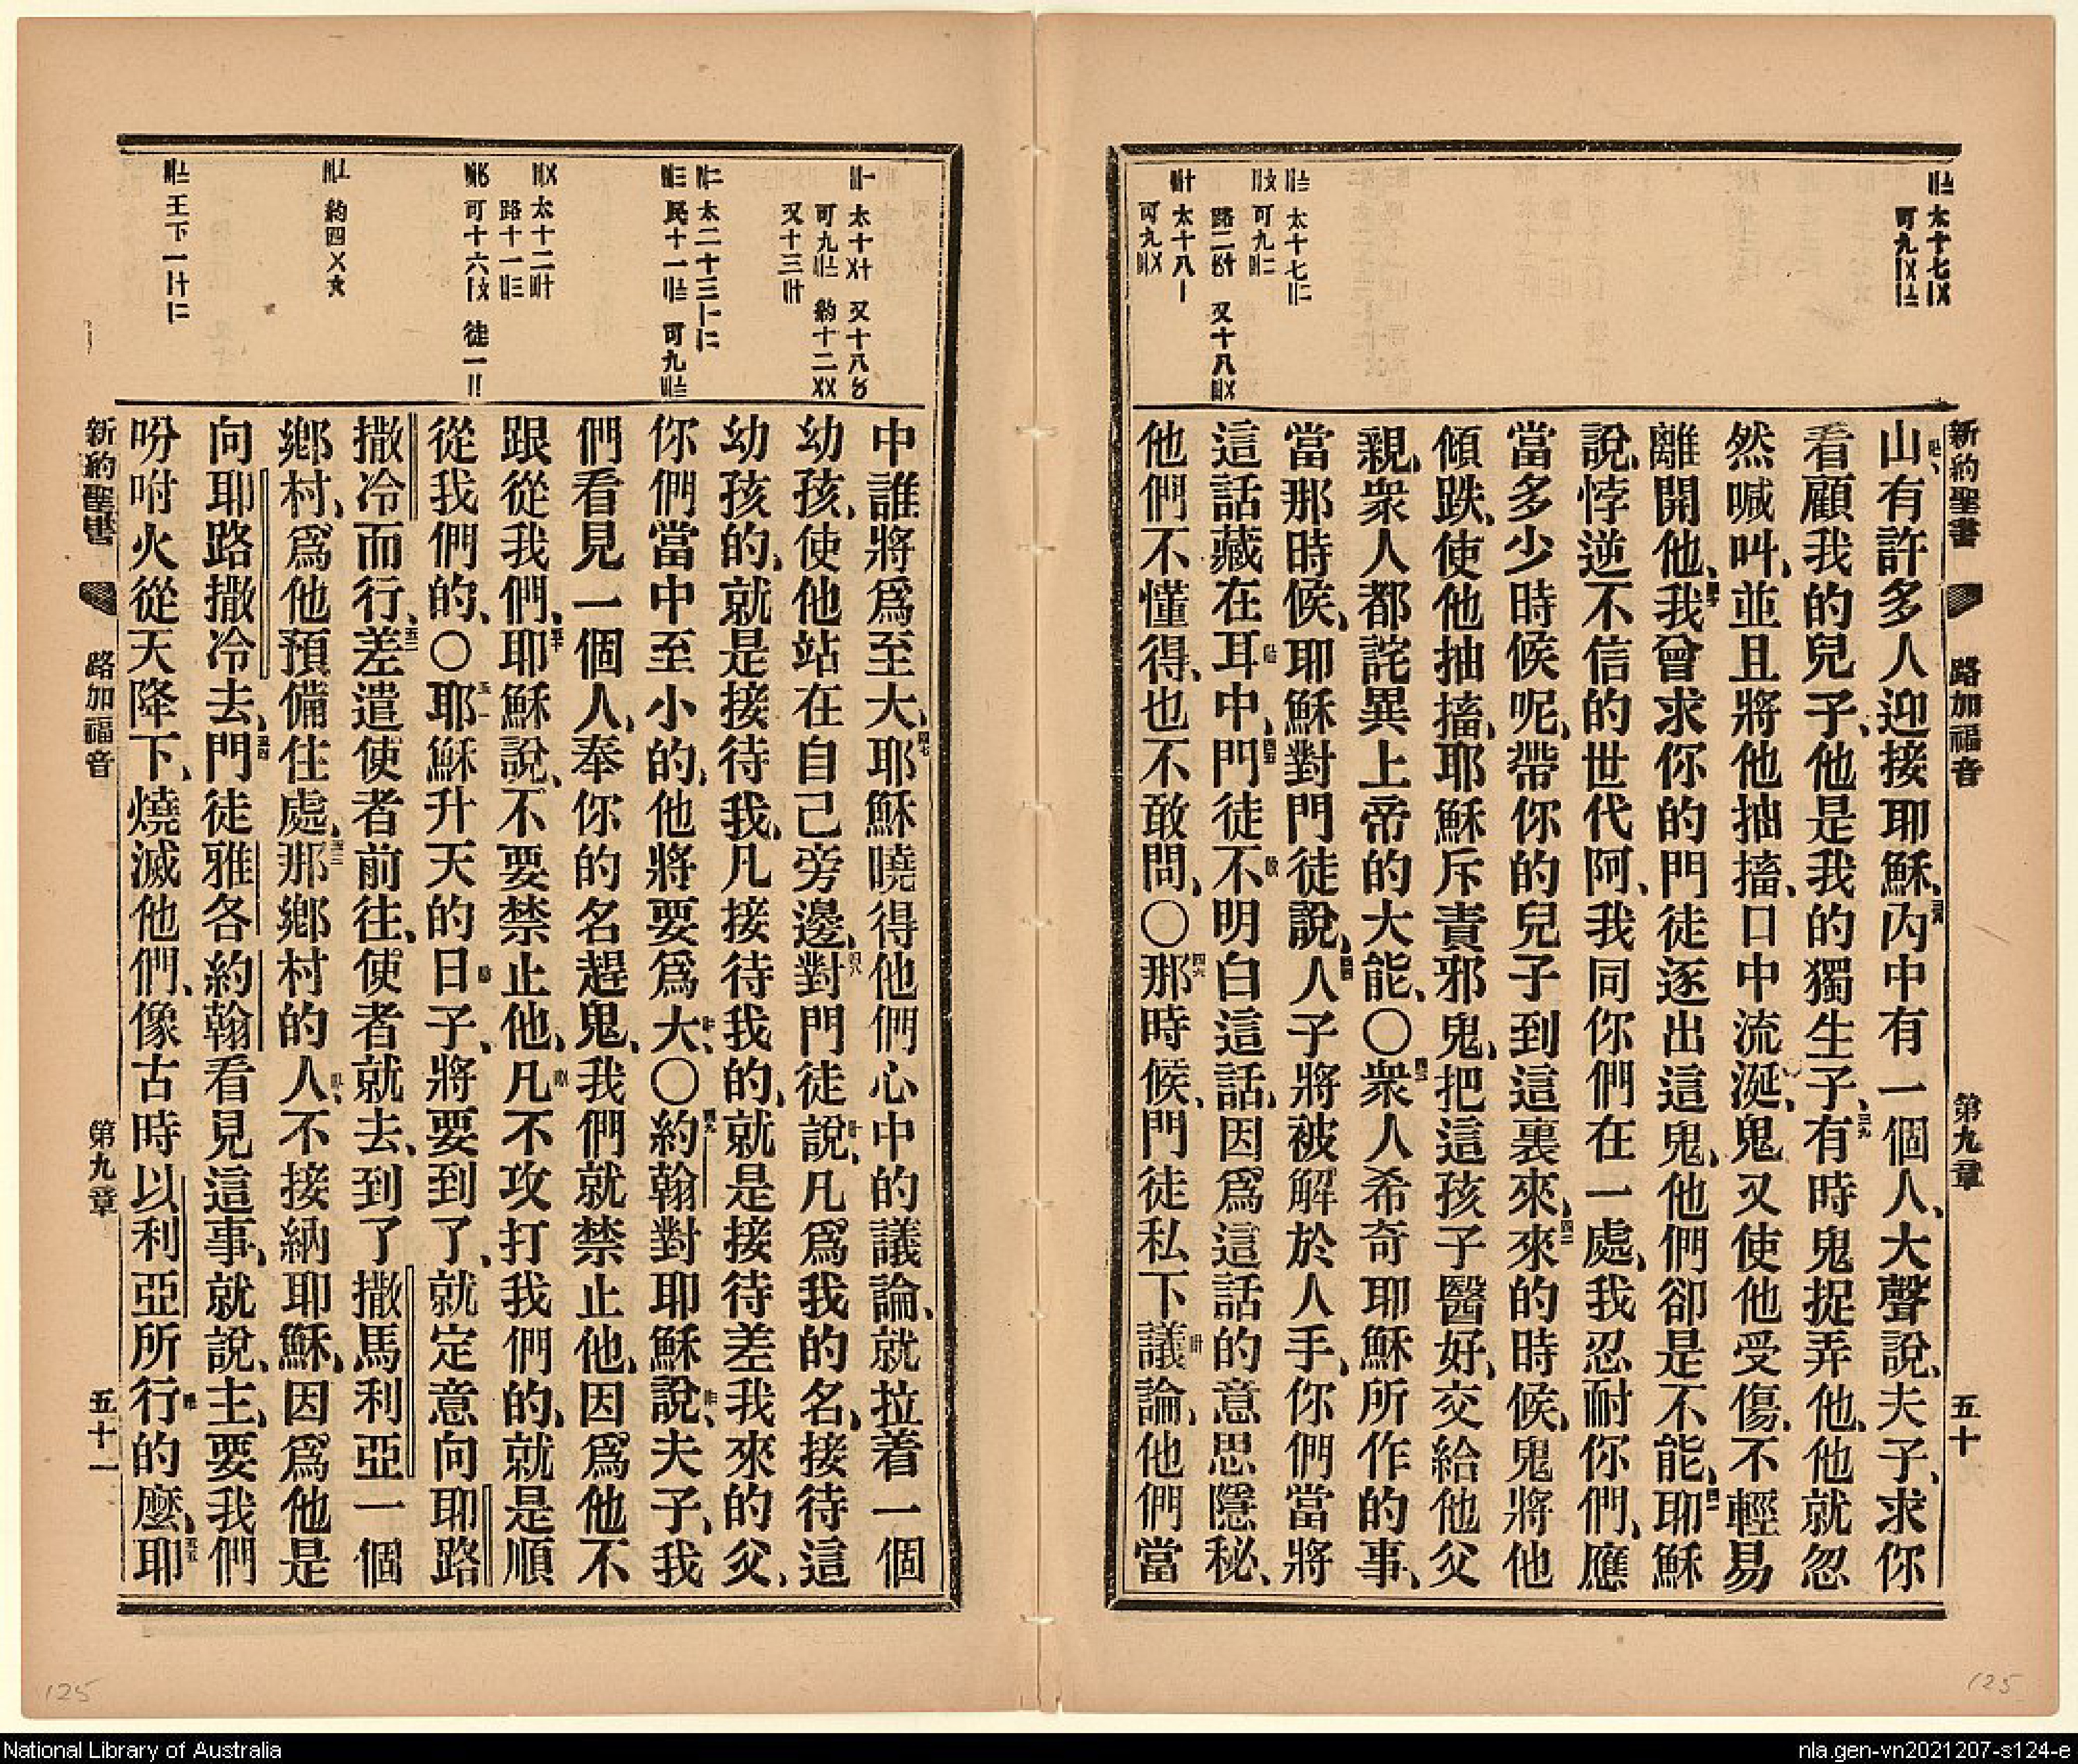 新約聖書 路加福音 第九章 五十
山有許多人迎接耶穌、內中有一個人、大聲說、夫子、求你
看顧我的兒子、他是我的獨生子、三九有時鬼捉弄他、他就忽
然喊叫、並且將他抽搐、口中流涎、鬼又使他受傷、不輕易
離開他、我曾求你的門徒逐出這鬼、他們卻是不能、耶穌
說、悖逆不信的世代阿、我同你們在一處、我忍耐你們、應
當多少時候呢、帶你的兒子到這裏來、四二來的時候、鬼將他
傾跌、使他抽搐、耶穌斥責邪鬼、把這孩子醫好、交給他父
親、衆人都詫異上帝的大能、〇衆人希奇耶穌所作的事、
當那時候、耶穌對門徒說、人子將被解於人手、你們當將
這話藏在耳中、門徒不明白這話、因爲這話的意思隱秘、
他們不懂得、也不敢問、〇四六那時候、門徒私下議論、他們當
中誰將爲至大、四七耶穌曉得他們心中的議論、就拉着一個
幼孩、使他站在自己旁邊、四八對門徒說、凡爲我的名、接待這
幼孩的、就是接待我、凡接待我的、就是接待差我來的父、
你們當中至小的、他將要爲大、〇四九約翰對耶穌說、夫子、我
們看見一個人、奉你的名趕鬼、我們就禁止他、因爲他不
跟從我們、五十耶穌說、不要禁止他、凡不攻打我們的、就是順
從我們的、〇五一耶穌升天的日子、將要到了、就定意向耶路
撒冷而行、五二差遣使者前往、使者就去、到了撒馬利亞一個
鄉村、爲他預備住處、五三那鄉村的人、不接納耶穌、因爲他是
向耶路撒冷去、五四門徒雅各約翰看見這事、就說、主、要我們
吩咐火從天降下、燒滅他們、像古時以利亞所行的麼、五五耶
新約聖書 路加福音 第九章 五十一
125
125
National Library of Australia
nla.gen-vn2021207-s124-e